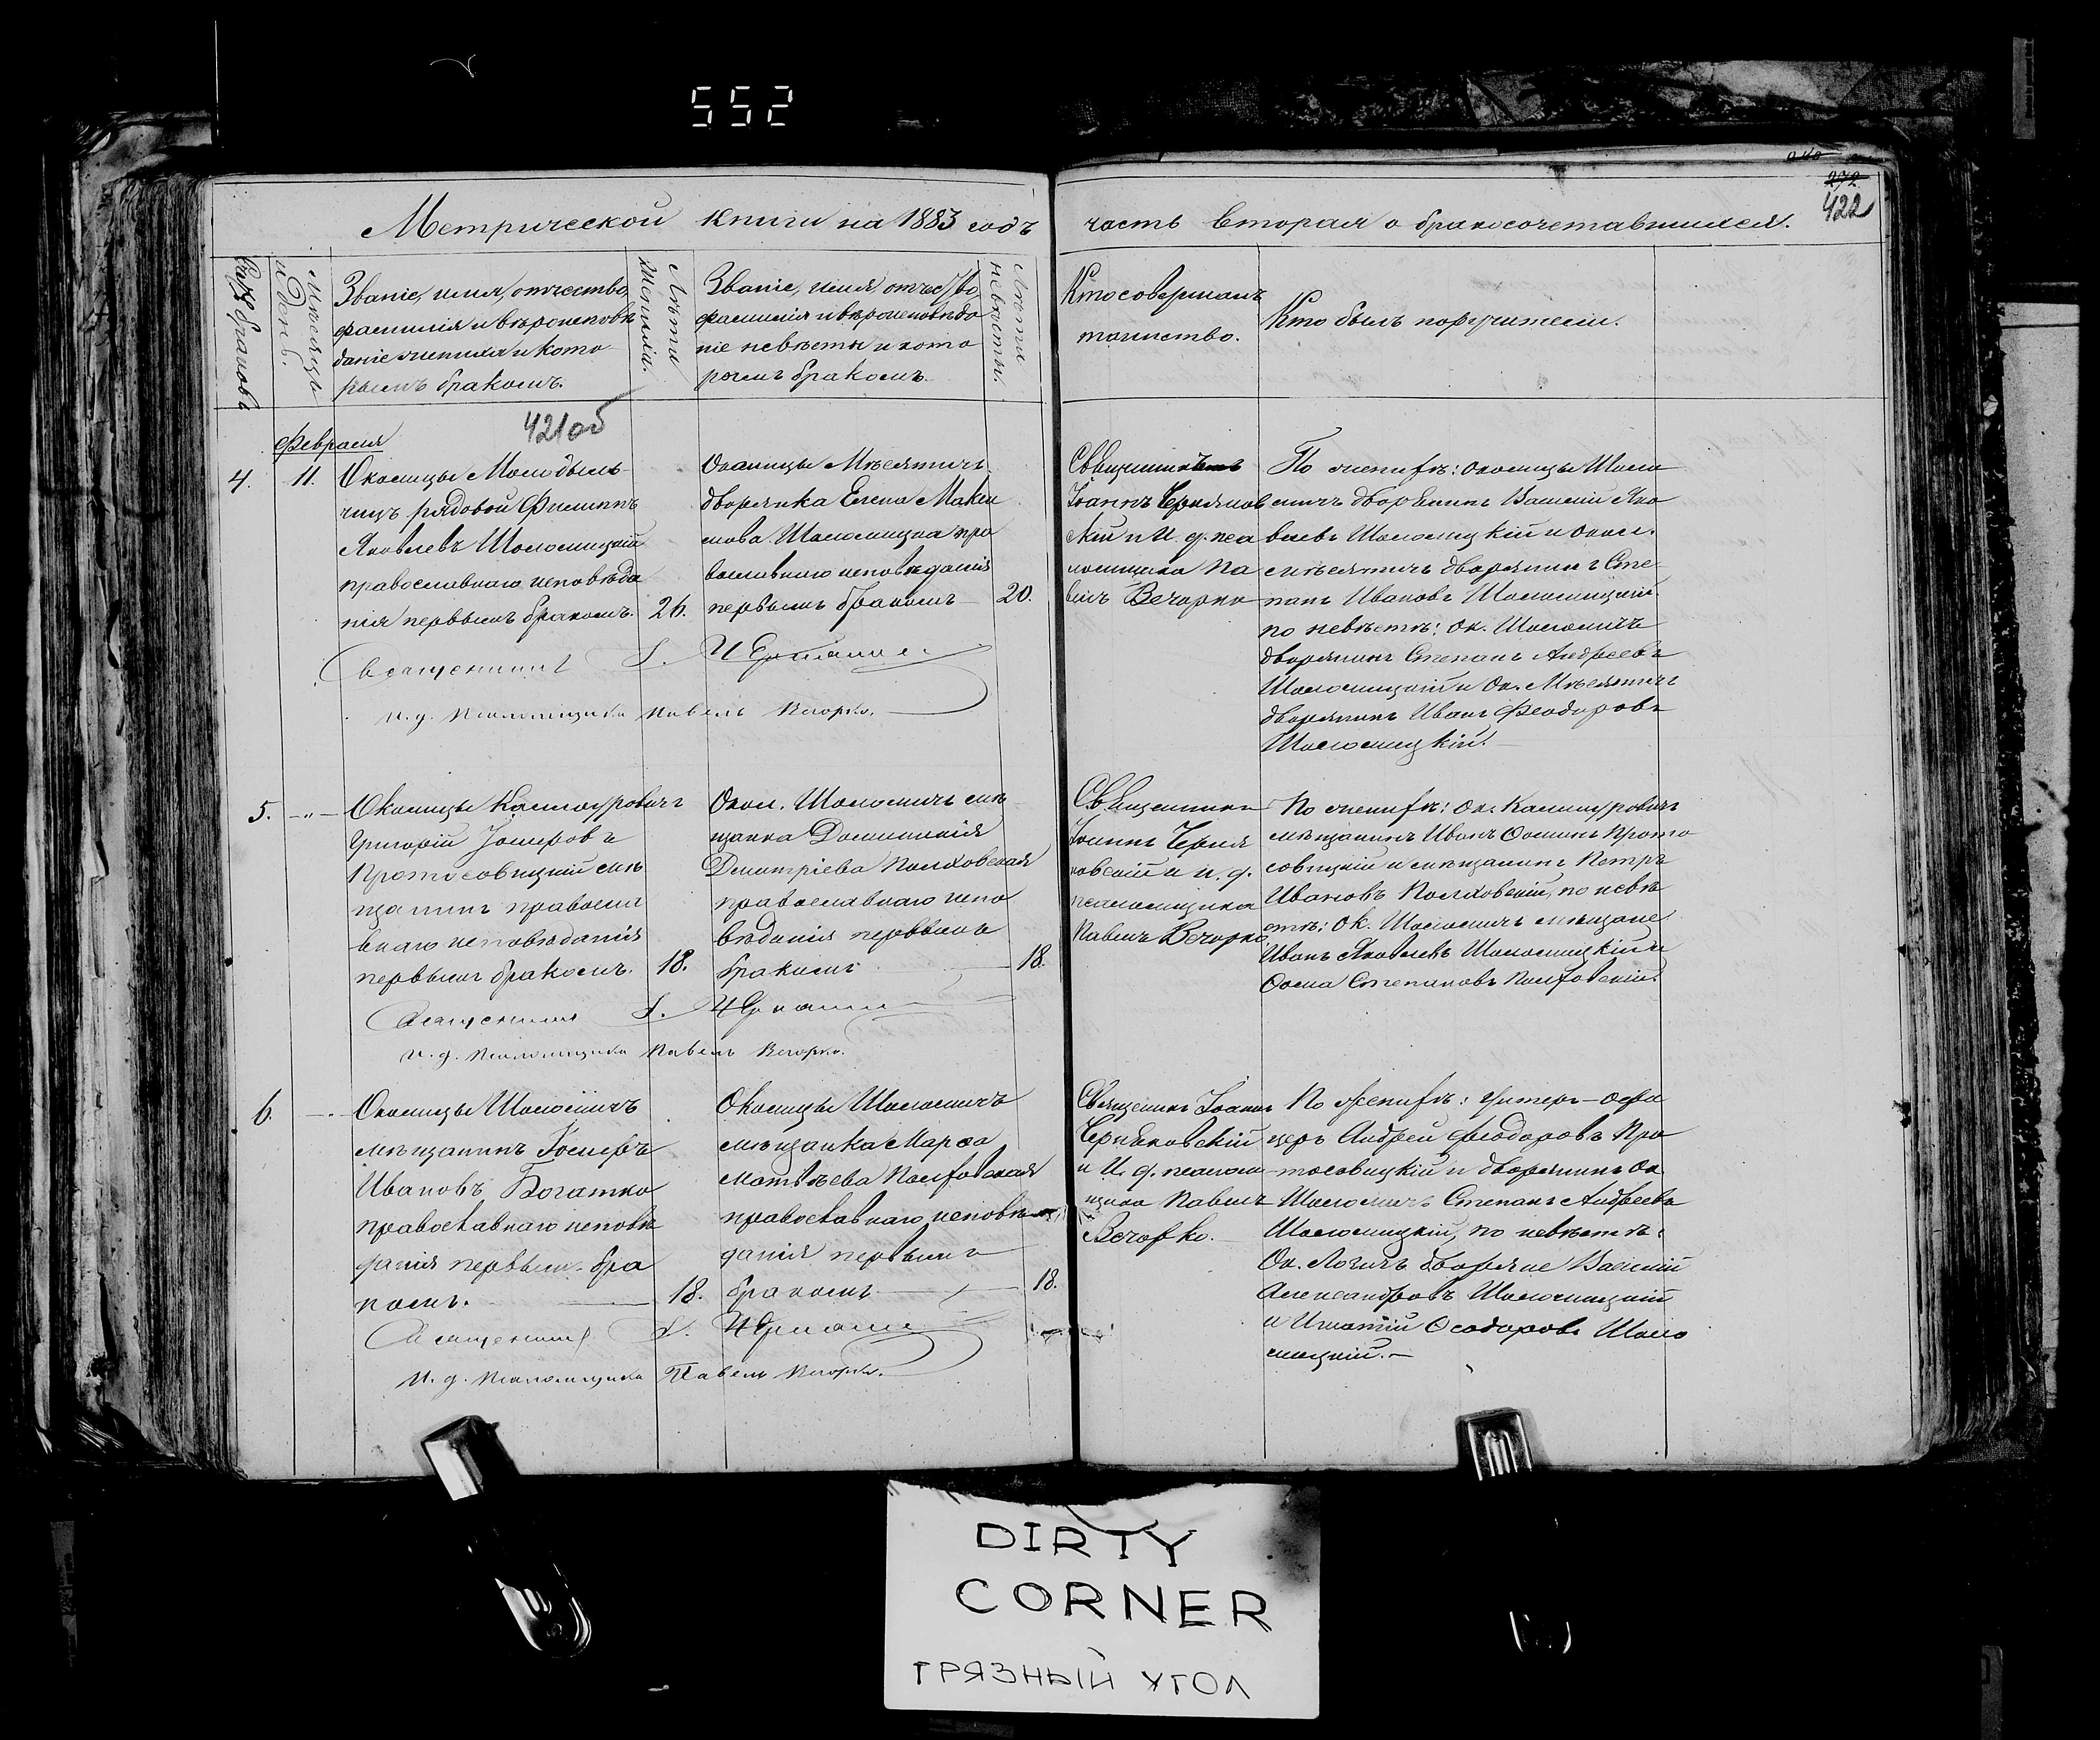 552
272
422
Метрической книги на 1883 годъ
часть вторая о бракосочетавшихся.
Счетъ браковъ
Мѣсяцъ и день.
Званіе, имя, отчество,
фамилія и вѣроисповѣ
даніе жениха и кото
рымъ бракомъ.
Лѣта жениха.
Званіе, имя, отчество
фамилія и вѣроисповѣда
ніе невѣсты и кото
рымъ бракомъ.
Лѣта невѣсты.
Кто совершалъ
таинство.
Кто былъ поручителемъ.
421об
Февраля
4.
11.
Околицы
рядовой Филиппъ
Яковлевъ Шоломицкій
православнаго исповѣда
нія первымъ бракомъ.
26.
Околицы Мѣсятичъ
дворянка Елена Макси
мова Шоломицка пра
вославнаго исповѣданія
первымъ бракомъ
20.
Священникъ
Іоаннъ Черняков
скій и И. д. пса
ломщика Па
велъ Вечорко
По женихѣ: околицы Шоло
мичъ дворянинъ Василій Яко
влевъ Шоломицкій и окол.
Мѣсятичъ дворянинъ Сте
панъ Ивановъ Шоломицкій.
по невѣстѣ: Ок. Шоломичъ
дворянинъ Степанъ Андреевъ
Шоломицкій и Ок. Мѣсятичъ
дворянинъ Иванъ Феодоровъ
Шоломицкій.
Священникъ І.
и. д. Псаломщика Павелъ Вечорко.
5.
-"-
Околицы Каммоуровичъ
Григорій Іосифовъ
Протосовицкій мѣ
щанинъ правосла
внаго исповѣданія
первымъ бракомъ.
18.
Окол. Шоломичъ мѣ
щанка Домникія
Димитріева Полховская
православнаго испо
вѣданія первымъ
бракомъ
18.
Священникъ
Іоаннъ Черня
ковскій и и. д.
псаломщика
Павелъ Вечорко
По женихѣ: Ок.
мѣщанинъ Иванъ Ооминъ Прото
совицкій и мѣщанинъ Петръ
Ивановъ Полховскій, по невѣ
стѣ: Ок. Шоломичъ мѣщане
Иванъ Яковлевъ Шоломицкій и
Оома Степановъ Полховскій.
Священникъ І.
и. д. Псаломщика Павелъ Вечорко.
6.
Околицы Шоломичъ
мѣщанинъ Іосифъ
Ивановъ Богатко
православнаго исповѣ
данія первымъ бра
комъ.
18.
Околицы Шоломичъ
мѣщанка Марѳа
Матвѣева Полховская
православнаго исповѣ
данія первымъ
бракомъ
18.
Священникъ Іоаннъ
Черняковскій
и И. д. псалом
щика Павелъ
Вечорко.
По женихѣ: Унтеръ-офи
церъ Андрей Феодоровъ Про
тосовицкій и дворянинъ Ок.
Шоломичъ Степанъ Андреевъ
Шоломицкій, по невѣстѣ:
Ок. Логичъ дворяне Василій
Александровъ Шоломицкій
и Игнатій Ѳеодоровъ Шоло
мицкій.
Священникъ І.
И. д. Псаломщика Павелъ Вечорко.
DIRTY
CORNER
ГРЯЗНЫЙ УГОЛ